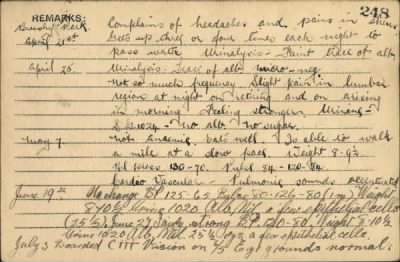 REMARKS: 248
Complains of headaches and pains in
April 21st Gets up three or four times each night to
pass water Urinalysis - Faint trace of alb
April 25 Urinalysis - Trace of alb micro-neg
not so much frequency Slight pain in lumbar
region at night on retiring and on arising
in morning. Feeling stronger. Urine -
S.G. 1024 - no alb no sugar.
May 7. not anaemic, eats well. Is able to walk
a mile at a slow pace Weight 8-9½
130-70. Pulse 84-120-84
Cardio Vascular - Pulmonic sounds accentuated
June 19th No change BP 125-65 80-126-80 (1m) Weight
8-10½ Urine 1020 Alb, a few epithelial cells
June 27 BP 130-80, Weight 8-10½
Urine 1020 Alb, a few epithelial cells.
July 3 Boarded CIII Vision Ears normal.